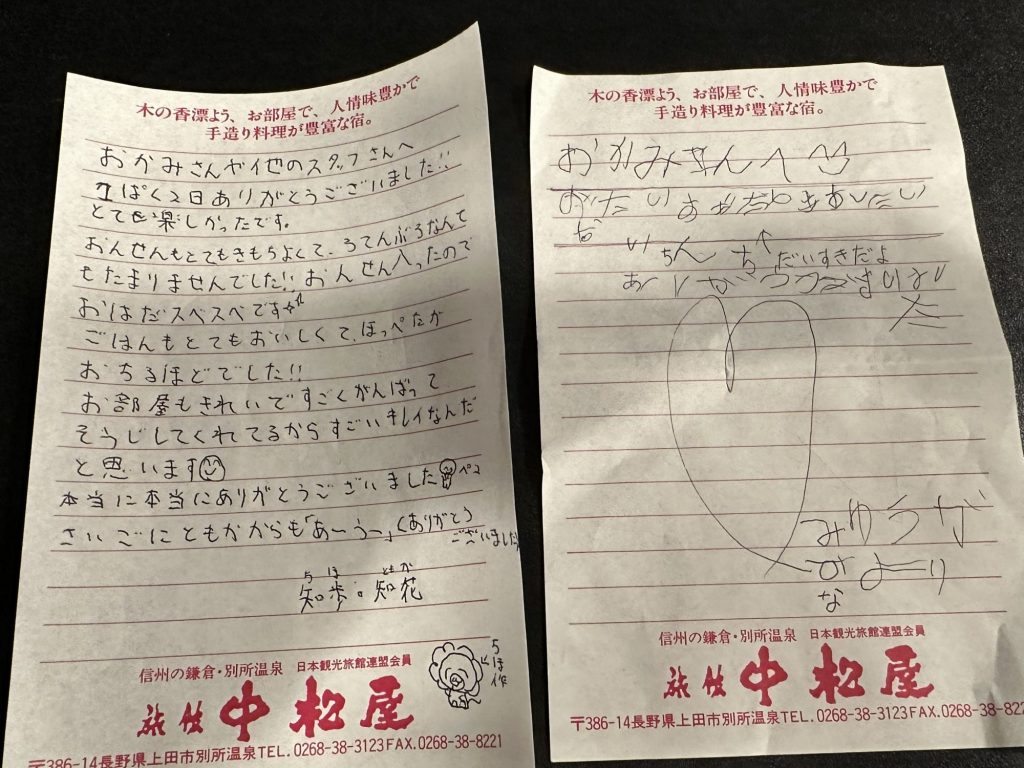 木の香漂よう、お部屋で、人情味豊かで
手造り料理が豊富な宿。
おかみさんや他のスタッフさんへ
1ぱく2日ありがとうございました!!
とても楽しかったです。
おんせんもとてもきもちよくて、ろてんぶろなんて
もたまりませんでした!!おんせん入ったので
おはだスベスベです
ごはんもとてもおいしくて、ほっぺたが
おちるほどでした!!
お部屋もきれいですごくがんばって
そうじしてくれてるからすごいキレイなんだ
と思います
本当に本当にありがとうございました ペコ
さいごにともかからも「あーうー」(ありがとう
ございました)
ちほ ともか
知歩・知花
ちほ作
信州の鎌倉・別所温泉 日本観光旅館連盟会員
旅館 中松屋
〒386-14長野県上田市別所温泉TEL.0268-38-3123FAX.0268-38-8221
木の香漂よう、お部屋で、人情味豊かで
手造り料理が豊富な宿。
おかみさんへ
いちん
だいすきだよ
みゆうが
な より
信州の鎌倉・別所温泉 日本観光旅館連盟会員
旅館 中松屋
〒386-14長野県上田市別所温泉TEL.0268-38-3123FAX.0268-38-822